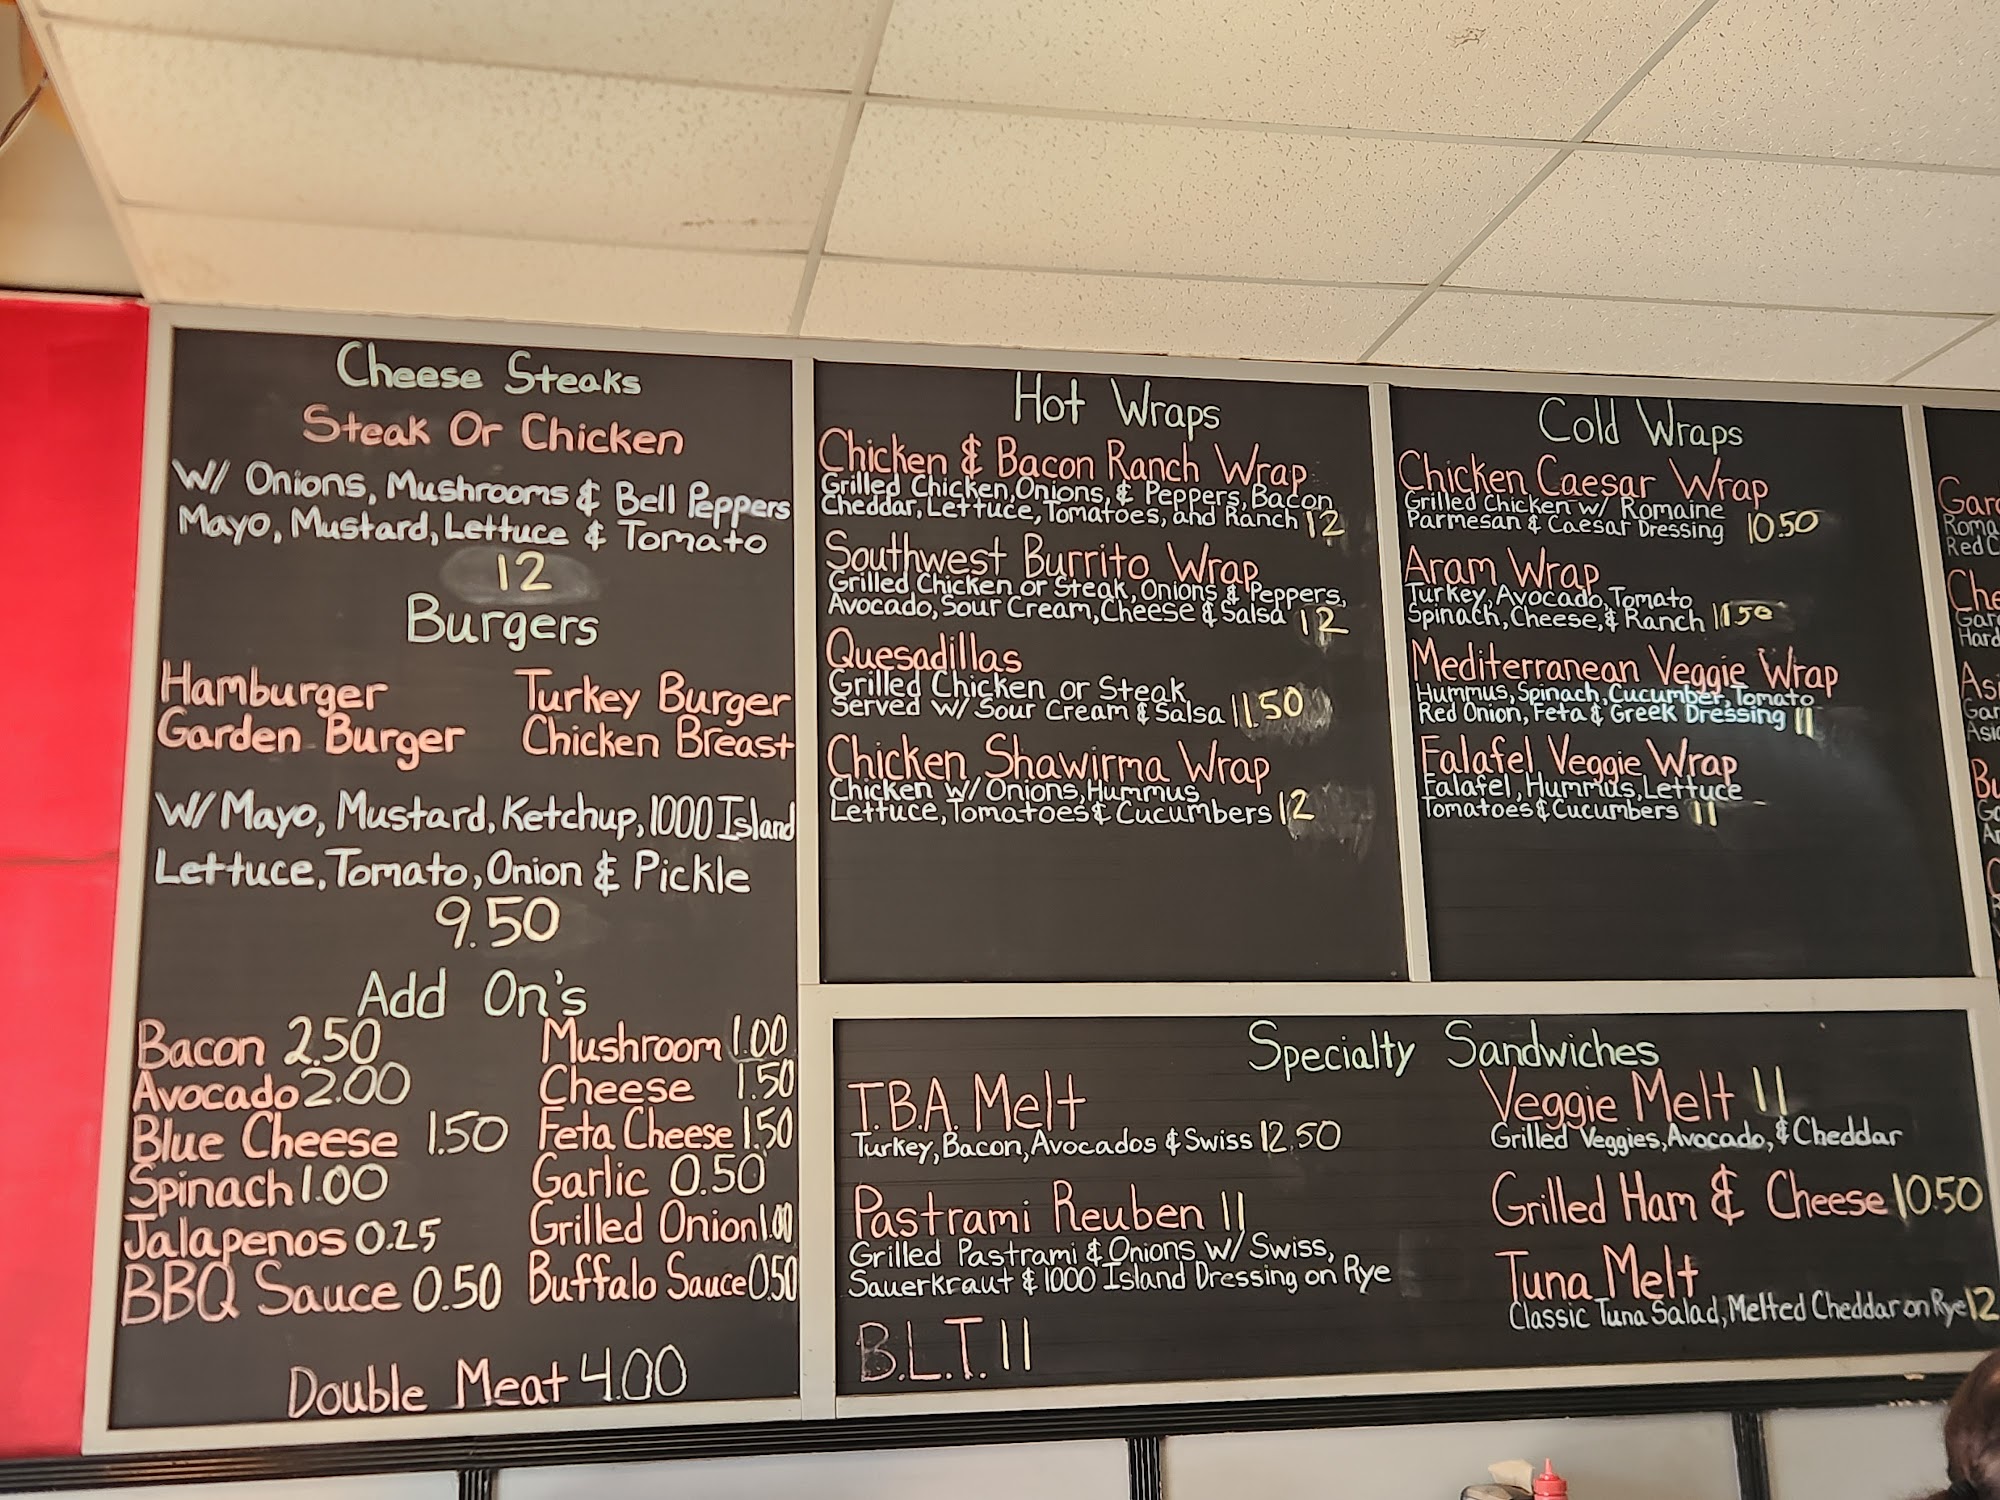 Cheese Steaks
Steak Or Chicken
W/ Onions, Mushrooms & Bell Peppers
Mayo, Mustard, Lettuce & Tomato
12
Burgers
Hamburger Turkey Burger
Garden Burger Chicken Breast
W/ Mayo, Mustard, Ketchup, 1000 Island
Lettuce, Tomato, Onion & Pickle
9.50
Add On's
Bacon 2.50 Mushroom 1.00
Avocado 2.00 Cheese 1.50
Blue Cheese 1.50 Feta Cheese 1.50
Spinach 1.00 Garlic 0.50
Jalapenos 0.25 Grilled Onion 1.00
BBQ Sauce 0.50 Buffalo Sauce 0.50
Double Meat 4.00
Hot Wraps
Chicken & Bacon Ranch Wrap
Grilled Chicken, Onions, & Peppers, Bacon
Cheddar, Lettuce, Tomatoes, and Ranch 12
Southwest Burrito Wrap
Grilled Chicken or Steak, Onions & Peppers,
Avocado, Sour Cream, Cheese & Salsa 12
Quesadillas
Grilled Chicken or Steak
Served w/ Sour Cream & Salsa 11.50
Chicken Shawirma Wrap
Chicken w/ Onions, Hummus
Lettuce, Tomatoes & Cucumbers 12
Cold Wraps
Chicken Caesar Wrap
Grilled Chicken w/ Romaine
Parmesan & Caesar Dressing 10.50
Aram Wrap
Turkey, Avocado, Tomato
Spinach, Cheese, & Ranch 11.50
Mediterranean Veggie Wrap
Hummus, Spinach, Cucumber, Tomato
Red Onion, Feta & Greek Dressing 11
Falafel Veggie Wrap
Falafel, Hummus, Lettuce
Tomatoes & Cucumbers 11
Specialty Sandwiches
T.B.A. Melt
Turkey, Bacon, Avocados & Swiss 12.50
Pastrami Reuben 11
Grilled Pastrami & Onions w/ Swiss,
Sauerkraut & 1000 Island Dressing on Rye
B.L.T. 11
Veggie Melt 11
Grilled Veggies, Avocado, & Cheddar
Grilled Ham & Cheese 10.50
Tuna Melt
Classic Tuna Salad, Melted Cheddar on Rye 12